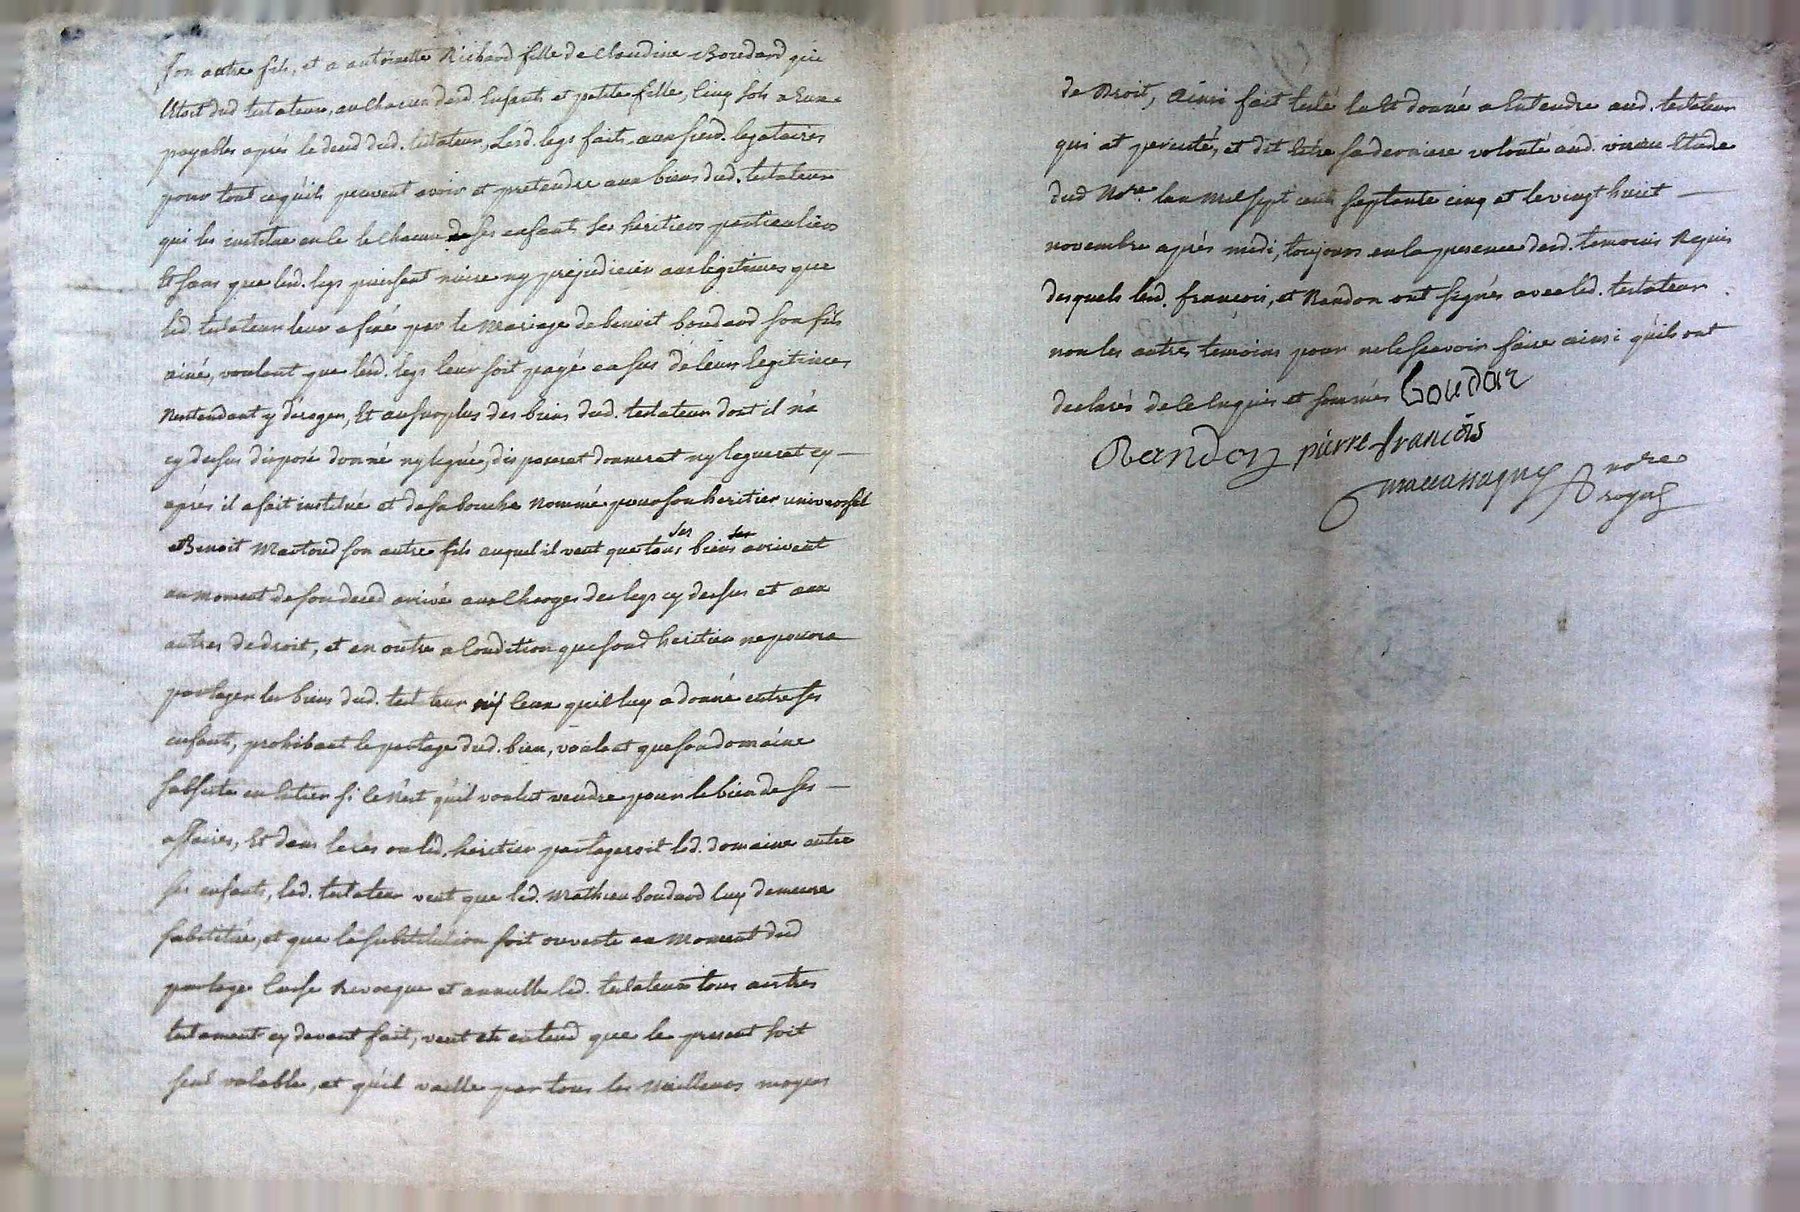 son autre fils, et a antoinette Richard fille de Claudine Boudard qui
Etoit dud testateur, au chacun desd Enfants et petite fille, Cinq sols a Eux
payables aprés le deced dud. testateur, Lesd. legs faits aux susd. legataires
pour tout ce qu'ils peuvent avoir et pretendre aux biens dud. testateur
qui les institue en le chacun de ses enfants ses heritiers particuliers
Et sans que lesd. legs puissent nuire ny prejudicier aux legitimes que
led. testateur leur a fixé par le Mariage de benoit boudard son fils
ainé, voulant que lesd. legs leur soit payé en sus de leurs legitimes
Nentendant y deroger, Et au surplus des biens dud. testateur dont il n'a
cy dessus disposé donné ny legué, disposerat donnerat ny leguerat cy
aprés il a fait institué et de sa bouche Nommé pour son heritier universel
Benoit Martoud son autre fils auquel il veut que tous ses biens arrivent
au moment de son deced arrivé aux Charges des legs cy dessus et aux
autres de droit, et en outre a Condition que sond heritier ne pourra
partager les biens dud. testateur ny Ceux quil luy a donné entre ses
enfants, prohibant le partage dud. bien, voulant que son domaine
subsiste en Entier si ce N'est qu'il voulut vendre pour le bien de ses
affaires, Et dans le cas ou led. heritier partageroit led. domaine entre
ses enfants, led. testateur veut que led. Mathieu boudard luy demeure
substitué, et que la substitution soit ouverte au Moment dud
partage Casse Revoque et annulle led. testateur tous autres
testament cy devant fait, veut et entend que le present soit
seul valable, et qu'il vaille par tous les Meilleurs moyens
de Droit, Ainsi fait testé lu Et donné a Entendre aud. testateur
qui at percisté, et dit Estre sa derniere volonté aud. Etude
dud No.re lan Mil sept cents septante cinq et le vingt huit
novembre aprés midi, toujours en la presence desd. temoins Requis
desquels lesd. francois, et Randon ont signés avec led. testateur
non les autres temoins pour ne le scavoir faire ainsi qu'ils ont
declarés de ce Enquis et sommés boudar
Randon pierre francois
notre
royal